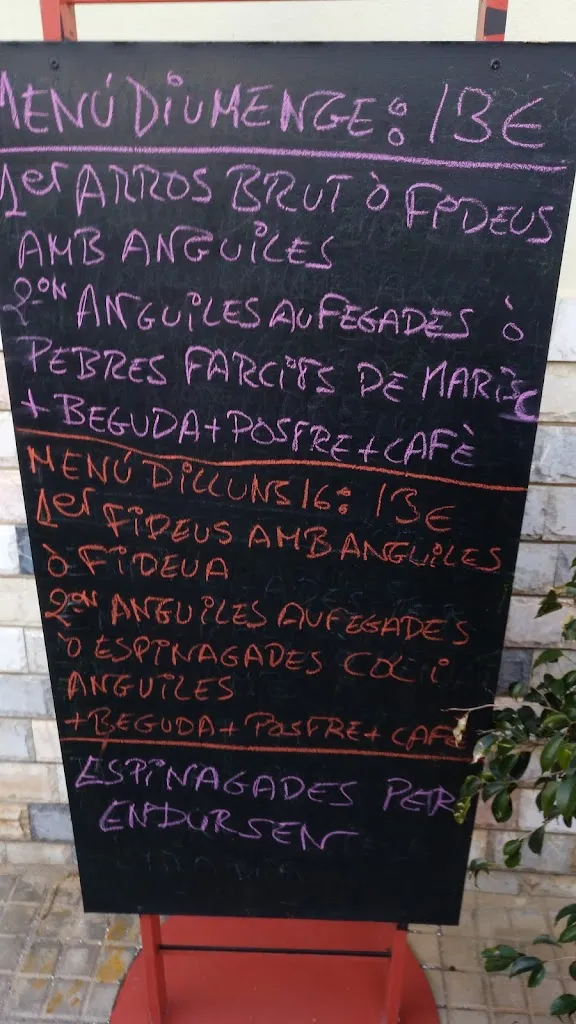 MENÚ DIUMENGE: 13€
1er ARROS BRUT Ò FIDEUS
AMB ANGUILES
2on ANGUILES AUFEGADES Ò
PEBRES FARCITS DE MARISC
+ BEGUDA + POSTRE + CAFÈ
MENÚ DILLUNS 16: 13€
1er FIDEUS AMB ANGUILES
Ò FIDEUA
2on ANGUILES AUFEGADES
Ò ESPINAGADES COL i
ANGUILES
+ BEGUDA + POSTRE + CAFÈ
ESPINAGADES PER
ENDURSEN